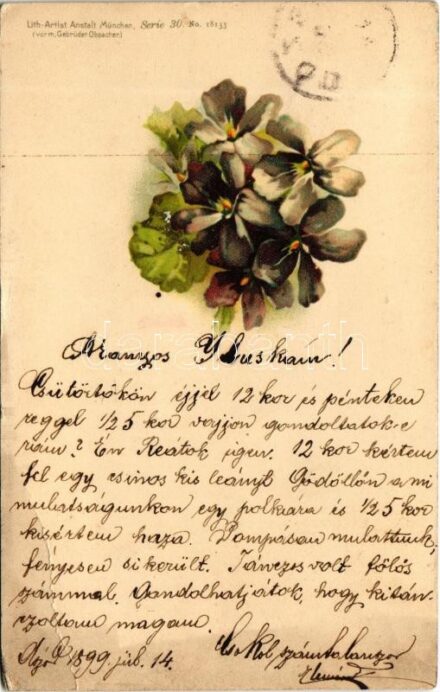 Lith-Artist Anstalt München, Serie 30. No. 18133
(vorm. Gebrüder Obpacher)
Aranyos Yluskám!
Csütörtökön éjjel 12 kor és pénteken
reggel 1/2 5 kor vajjon gondoltatok-e
rám? Én Reátok igen. 12 kor kértem
fel egy csinos kis leányt Gödöllőn a mi
mulatságunkon egy polkára és 1/2 5 kor
kisértem haza. Pompásan mulattunk,
fényesen sikerült. Tánczos volt fölös
számmal. Gondolhatjátok, hogy kitán-
czoltam magam.
1899. júl. 14.
Csókol számtalanszor